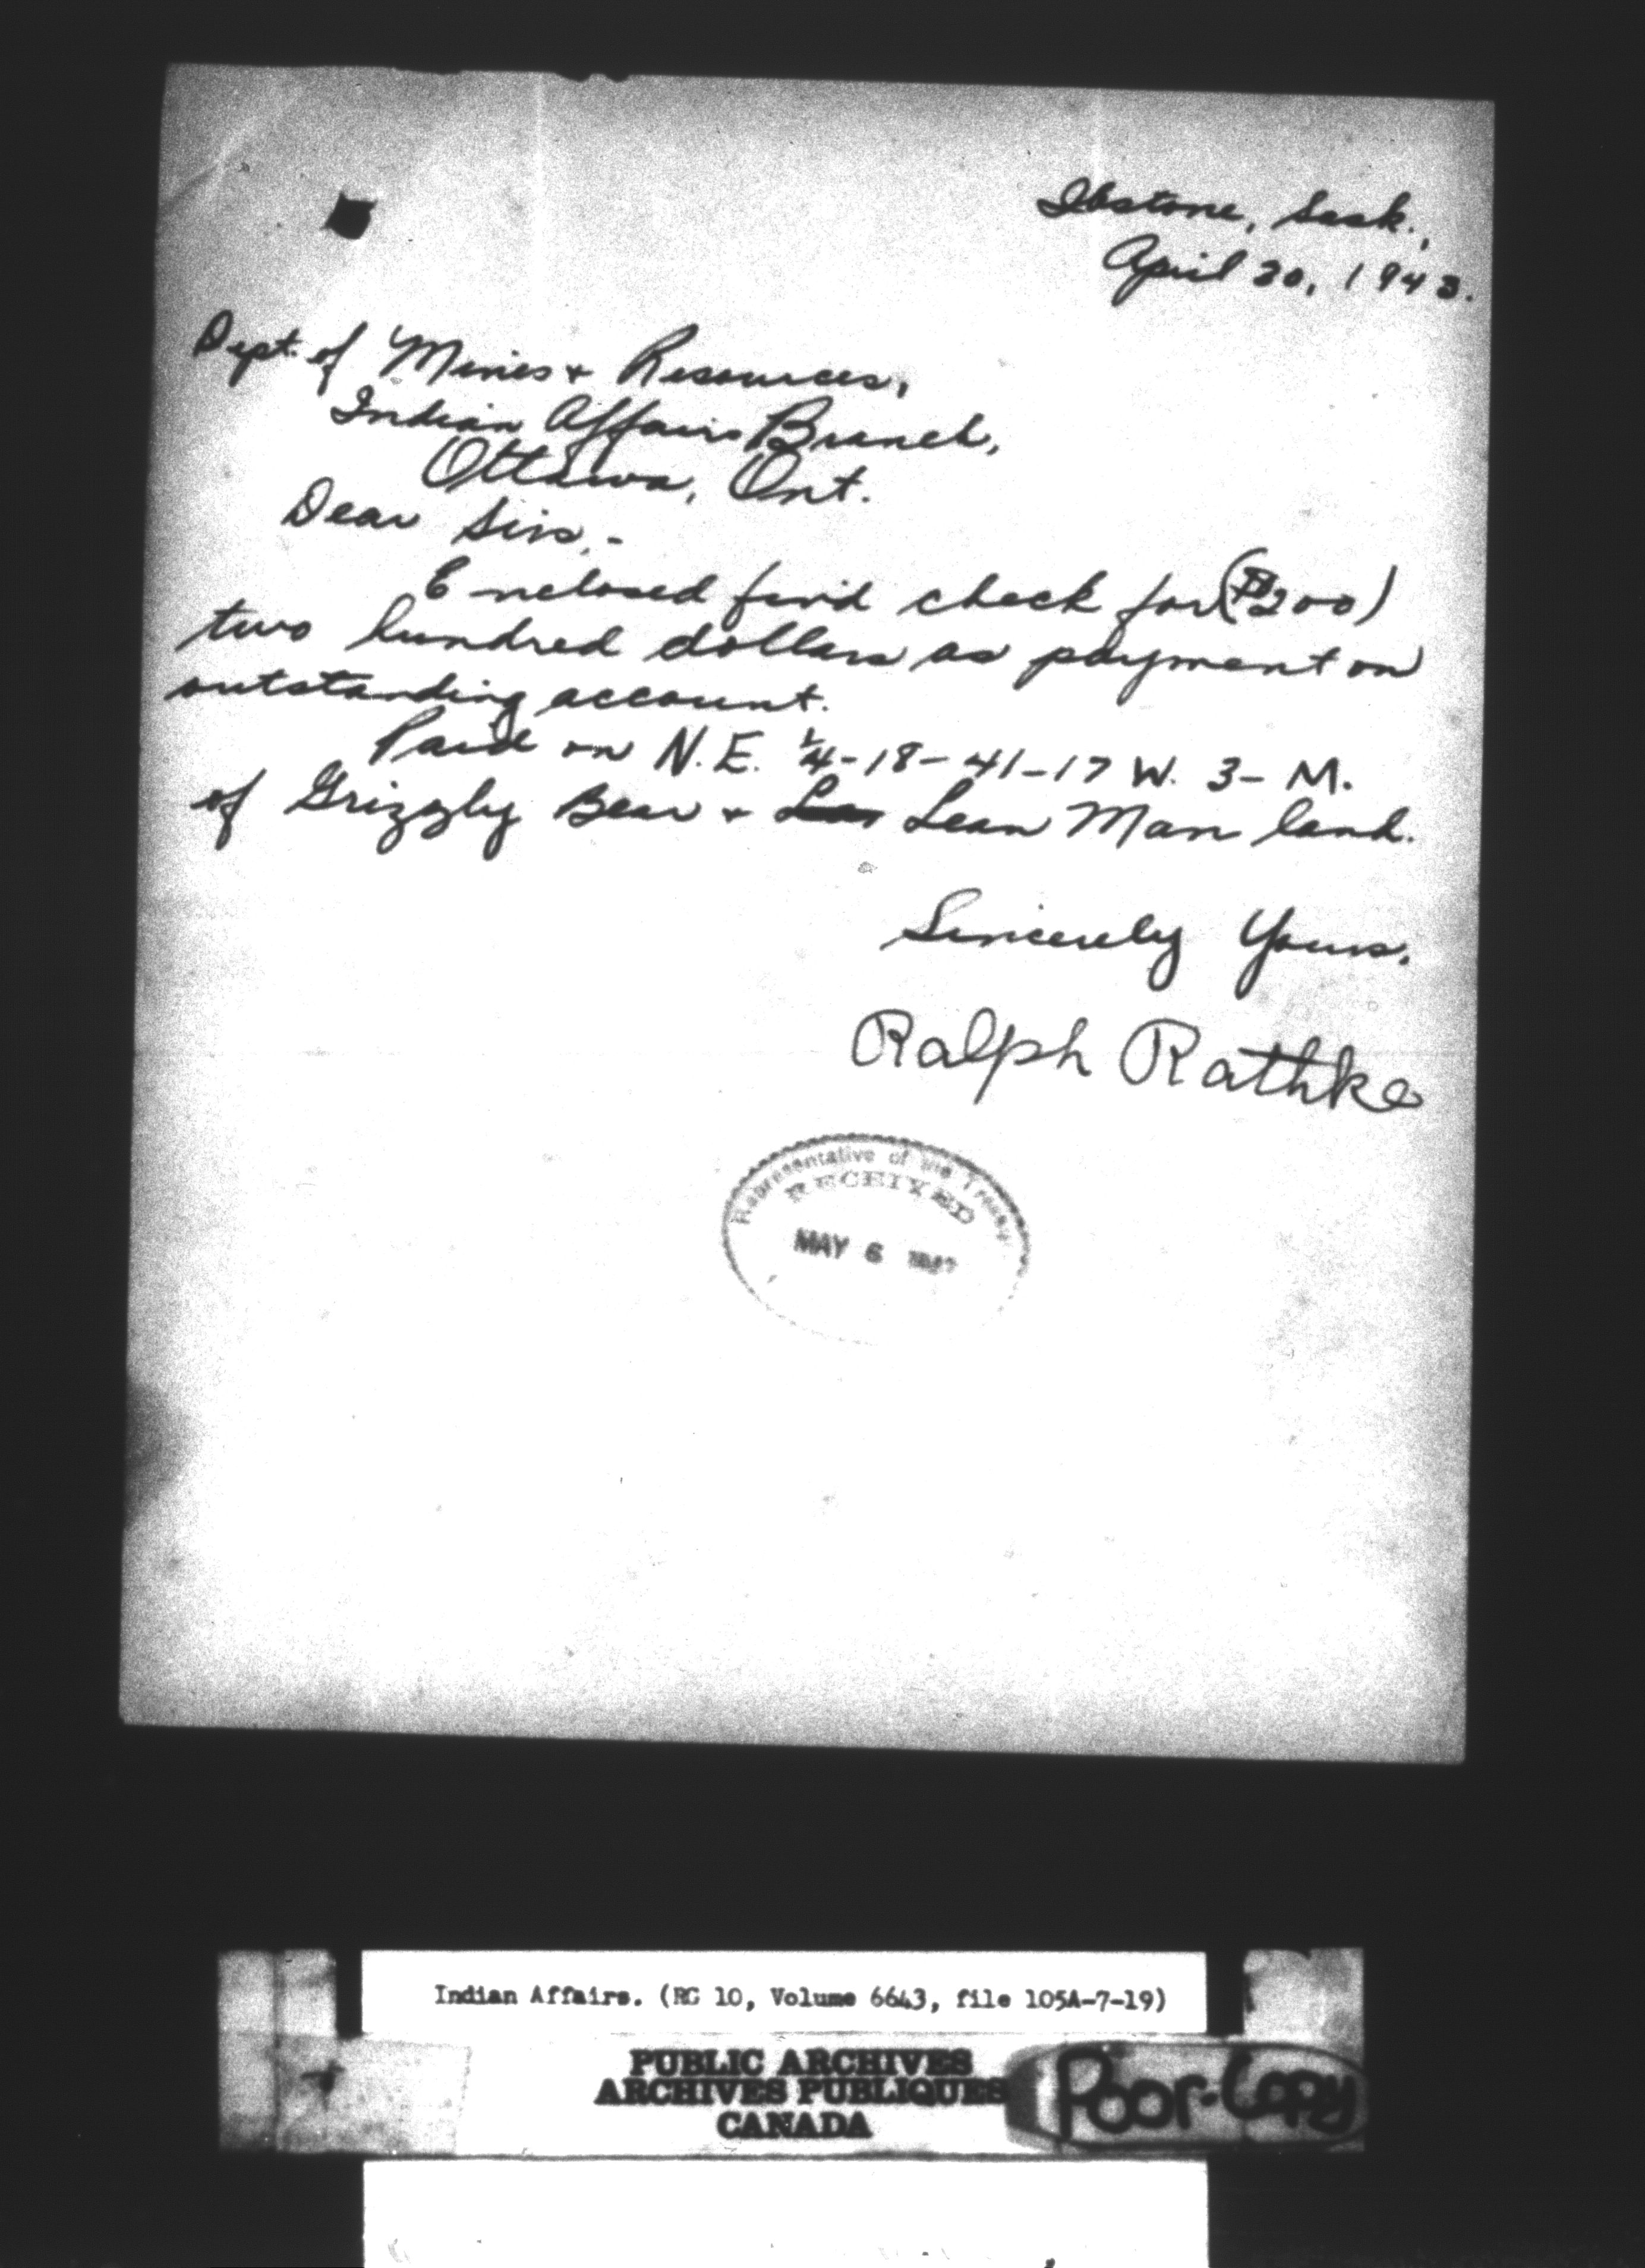 Ibstone, Sask.,
April 30, 1943.
Dept. of Mines & Resources,
Indian Affairs Branch,
Ottawa, Ont.
Dear Sirs,-
Enclosed find check for ($200)
two hundred dollars as payment on
outstanding account.
Paid on N.E. ¼-18-41-17 W. 3-M.
of Grizzly Bear & Lean Man land.
Sincerely Yours,
Ralph Rathke
Representative of the Treasury
RECEIVED
MAY 6
Indian Affairs. (RG 10, Volume 6643, file 105A-7-19)
PUBLIC ARCHIVES
ARCHIVES PUBLIQUES
CANADA
Poor-Copy